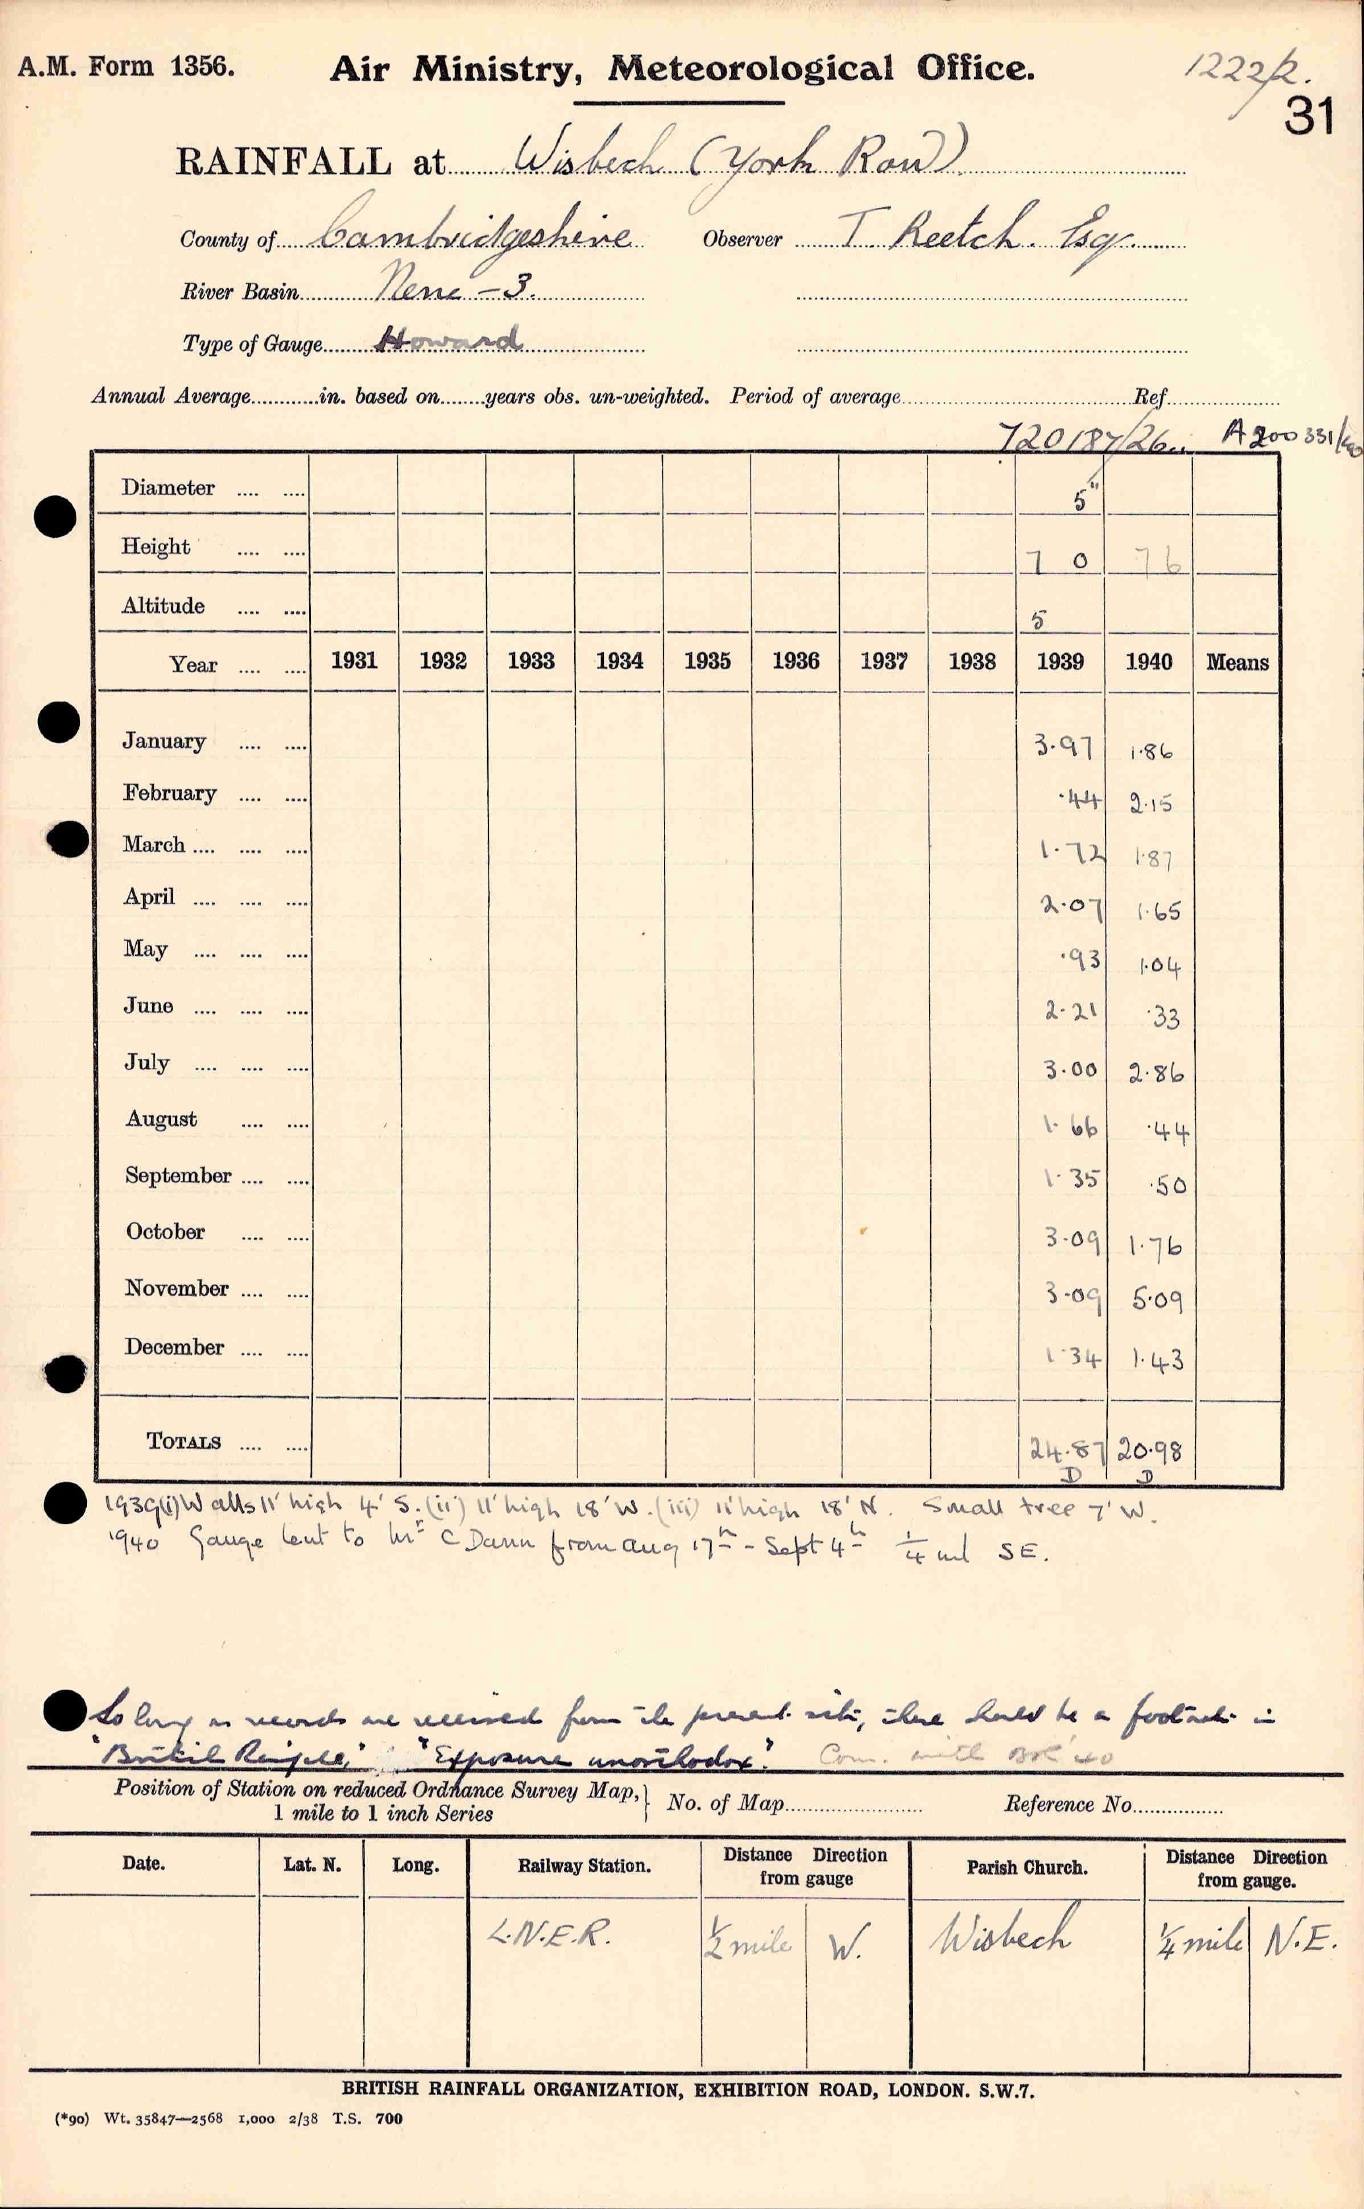 A.M. Form 1356.
Air Ministry, Meteorological Office.
1222/2.
31
RAINFALL at Wisbech (York Row)
County of Cambridgeshire Observer T. Reetch. Esq.
River Basin Nene - 3.
Type of Gauge Howard
Annual Average in. based on years obs. un-weighted. Period of average Ref
720187/26 A200331/40
Diameter 5"
Height 7 0 7 6
Altitude 5
Year 1931 1932 1933 1934 1935 1936 1937 1938 1939 1940 Means
January 3.97 1.86
February .44 2.15
March 1.72 1.87
April 2.07 1.65
May .93 1.04
June 2.21 .33
July 3.00 2.86
August 1.66 .44
September 1.35 .50
October 3.09 1.76
November 3.09 5.09
December 1.34 1.43
TOTALS 24.87 20.98
D D
1939 (i) Walls 11' high 4' S. (ii) 11' high 18' W. (iii) 11' high 18' N. Small tree 7' W.
1940 Gauge lent to Mr C Dann from Aug 17th - Sept 4th 1/4 ml SE.
So long as records are received from the present site, there should be a footnote in
"British Rainfall," "Exposure unorthodox." Com. with BR '40
Position of Station on reduced Ordnance Survey Map, 1 mile to 1 inch Series } No. of Map Reference No.
Date. Lat. N. Long. Railway Station. Distance Direction from gauge Parish Church. Distance Direction from gauge.
L.N.E.R. 1/2 mile W. Wisbech 1/4 mile N.E.
BRITISH RAINFALL ORGANIZATION, EXHIBITION ROAD, LONDON. S.W.7.
(*90) Wt. 35847—2568 1,000 2/38 T.S. 700